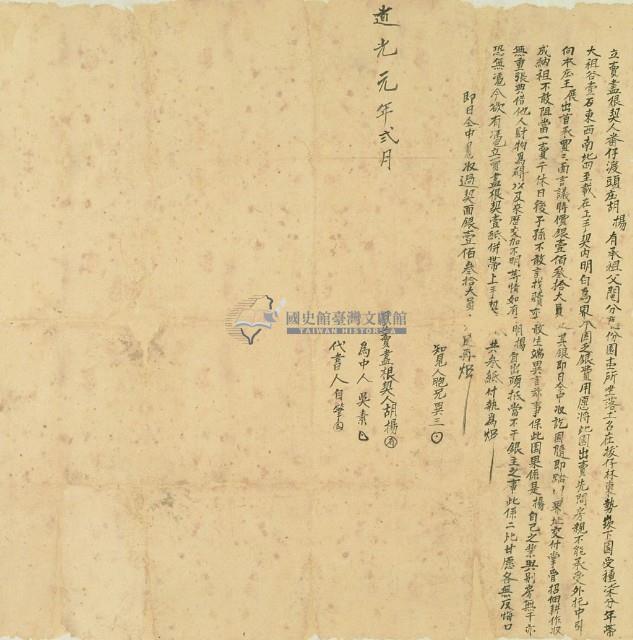 立賣盡根契人番仔渡頭庄胡楊有承祖父鬮分應份園壹所坐落土名在拔仔林東勢崁下園受種柒分年帶
大租谷壹石東西南北四至載在上手契內明白為界今因乏銀費用愿將此園出賣先問房親不能承受外托中引
向本庄王展出首承買三面言議時價銀壹佰叁拾大員其銀即日仝中收訖園隨即踏明界址交付掌管招佃耕作收
成納租不敢阻當一賣千休日後子孫不敢言找贖亦不敢生端異言滋事保此園果係是楊自己之業與別房無干亦
無重張典借他人財物為碍以及來歷交加不明等情如有不明楊自出頭抵當不干銀主之事此係二比甘愿各無反悔口
恐無憑今欲有憑立賣盡根契壹紙併帶上手契 共叁紙付執為炤
即日仝中見收過契面銀壹佰叁拾大員 再炤
知見人胞兄 三
立賣盡根契人胡楊
為中人吳素
代書人自筆
道光元年弍月
國史館臺灣文獻館
TAIWAN HISTORICA